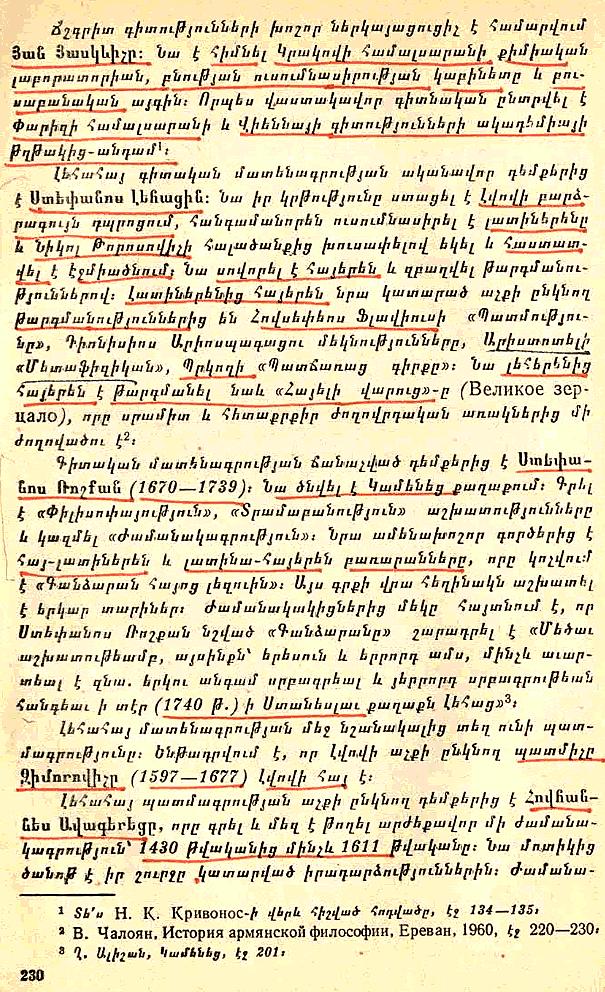 Ճշգրիտ գիտությունների խոշոր ներկայացուցիչ է համարվում
Յան Յասկևիչը։ Նա է հիմնել Կրակովի համալսարանի քիմիական
լաբորատորիան, բնության ուսումնասիրության կաբինետը և բու-
սաբանական այգին։ Որպես վաստակավոր գիտնական ընտրվել է
Փարիզի համալսարանի և Վիեննայի գիտությունների ակադեմիայի
թղթակից-անդամ¹։
Լեհահայ գիտական մատենագրության ականավոր դեմքերից
է Ստեփանոս Լեհացին։ Նա իր կրթությունը ստացել է Լվովի բարձ-
րագույն դպրոցում, հանգամանորեն ուսումնասիրել է լատիներենը
և Նիկոլ Թորոսովիչի հալածանքից խուսափելով եկել և հաստատ-
վել է էջմիածնում։ Նա սովորել է հայերեն և զբաղվել թարգմանու-
թյուններով։ Լատիներենից հայերեն նրա կատարած աչքի ընկնող
թարգմանություններից են Հովսեփոս Ֆլավիուսի «Պատմությու-
նը», Դիոնիսիոս Արիոսպագացու մեկնությունները, Արիստոտելի
«Մետաֆիզիկան», Պրկողի «Պատճառաց գիրքը»։ Նա լեհերենից
հայերեն է թարգմանել նաև «Հայելի վարուց»-ը (Великое зер-
цало), որը սրամիտ և հետաքրքիր ժողովրդական առակներից մի
ժողովածու է²։
Գիտական մատենագրության ճանաչված դեմքերից է Ստեփա-
նոս Ռոշքան (1670—1739)։ Նա ծնվել է Կամենեց քաղաքում։ Գրել
է «Փիլիսոփայություն», «Տրամաբանություն» աշխատությունները
և կազմել «Ժամանակագրություն»։ Նրա ամենախոշոր գործերից է
հայ-լատիներեն և լատինա-հայերեն բառարանները, որը կոչվում
է «Գանձարան հայոց լեզուին»։ Այս գրքի վրա հեղինակն աշխատել
է երկար տարիներ։ Ժամանակակիցներից մեկը հայտնում է, որ
Ստեփանոս Ռոշքան նշված «Գանձարանը» շարադրել է «Մեծաւ
աշխատութեամբ, այսինքն՝ երեսուն և երրորդ ամս, մինչև աւար-
տեալ է զնա. երկու անգամ սրբագրեալ և յերրորդ սրբագրութեան
հանդեաւ ի տէր (1740 թ.) ի Ստանեսլաւ քաղաքն Լեհաց»³։
Լեհահայ մատենագրության մեջ նշանակալից տեղ ունի պատ-
մագրությունը։ Ենթադրվում է, որ Լվովի աչքի ընկնող պատմիչը
Զիմորովիչը (1597—1677) Լվովի հայ է։
Լեհահայ պատմագրության աչքի ընկնող դեմքերից է Հովհան-
նես Ավագերեցը, որը գրել և մեզ է թողել արժեքավոր մի ժամանա-
կագրություն՝ 1430 թվականից մինչև 1611 թվականը։ Նա մոտիկից
ծանոթ է իր շուրջը կատարված իրադարձություններին։ Ժամանա-
¹ Տե՛ս Н. К. Кривонос-ի վերև հիշված հոդվածը, էջ 134—135։
² В. Чалоян, История армянской философии, Ереван, 1960, էջ 220—230։
³ Ղ. Ալիշան, Կամենեց, էջ 201։
230